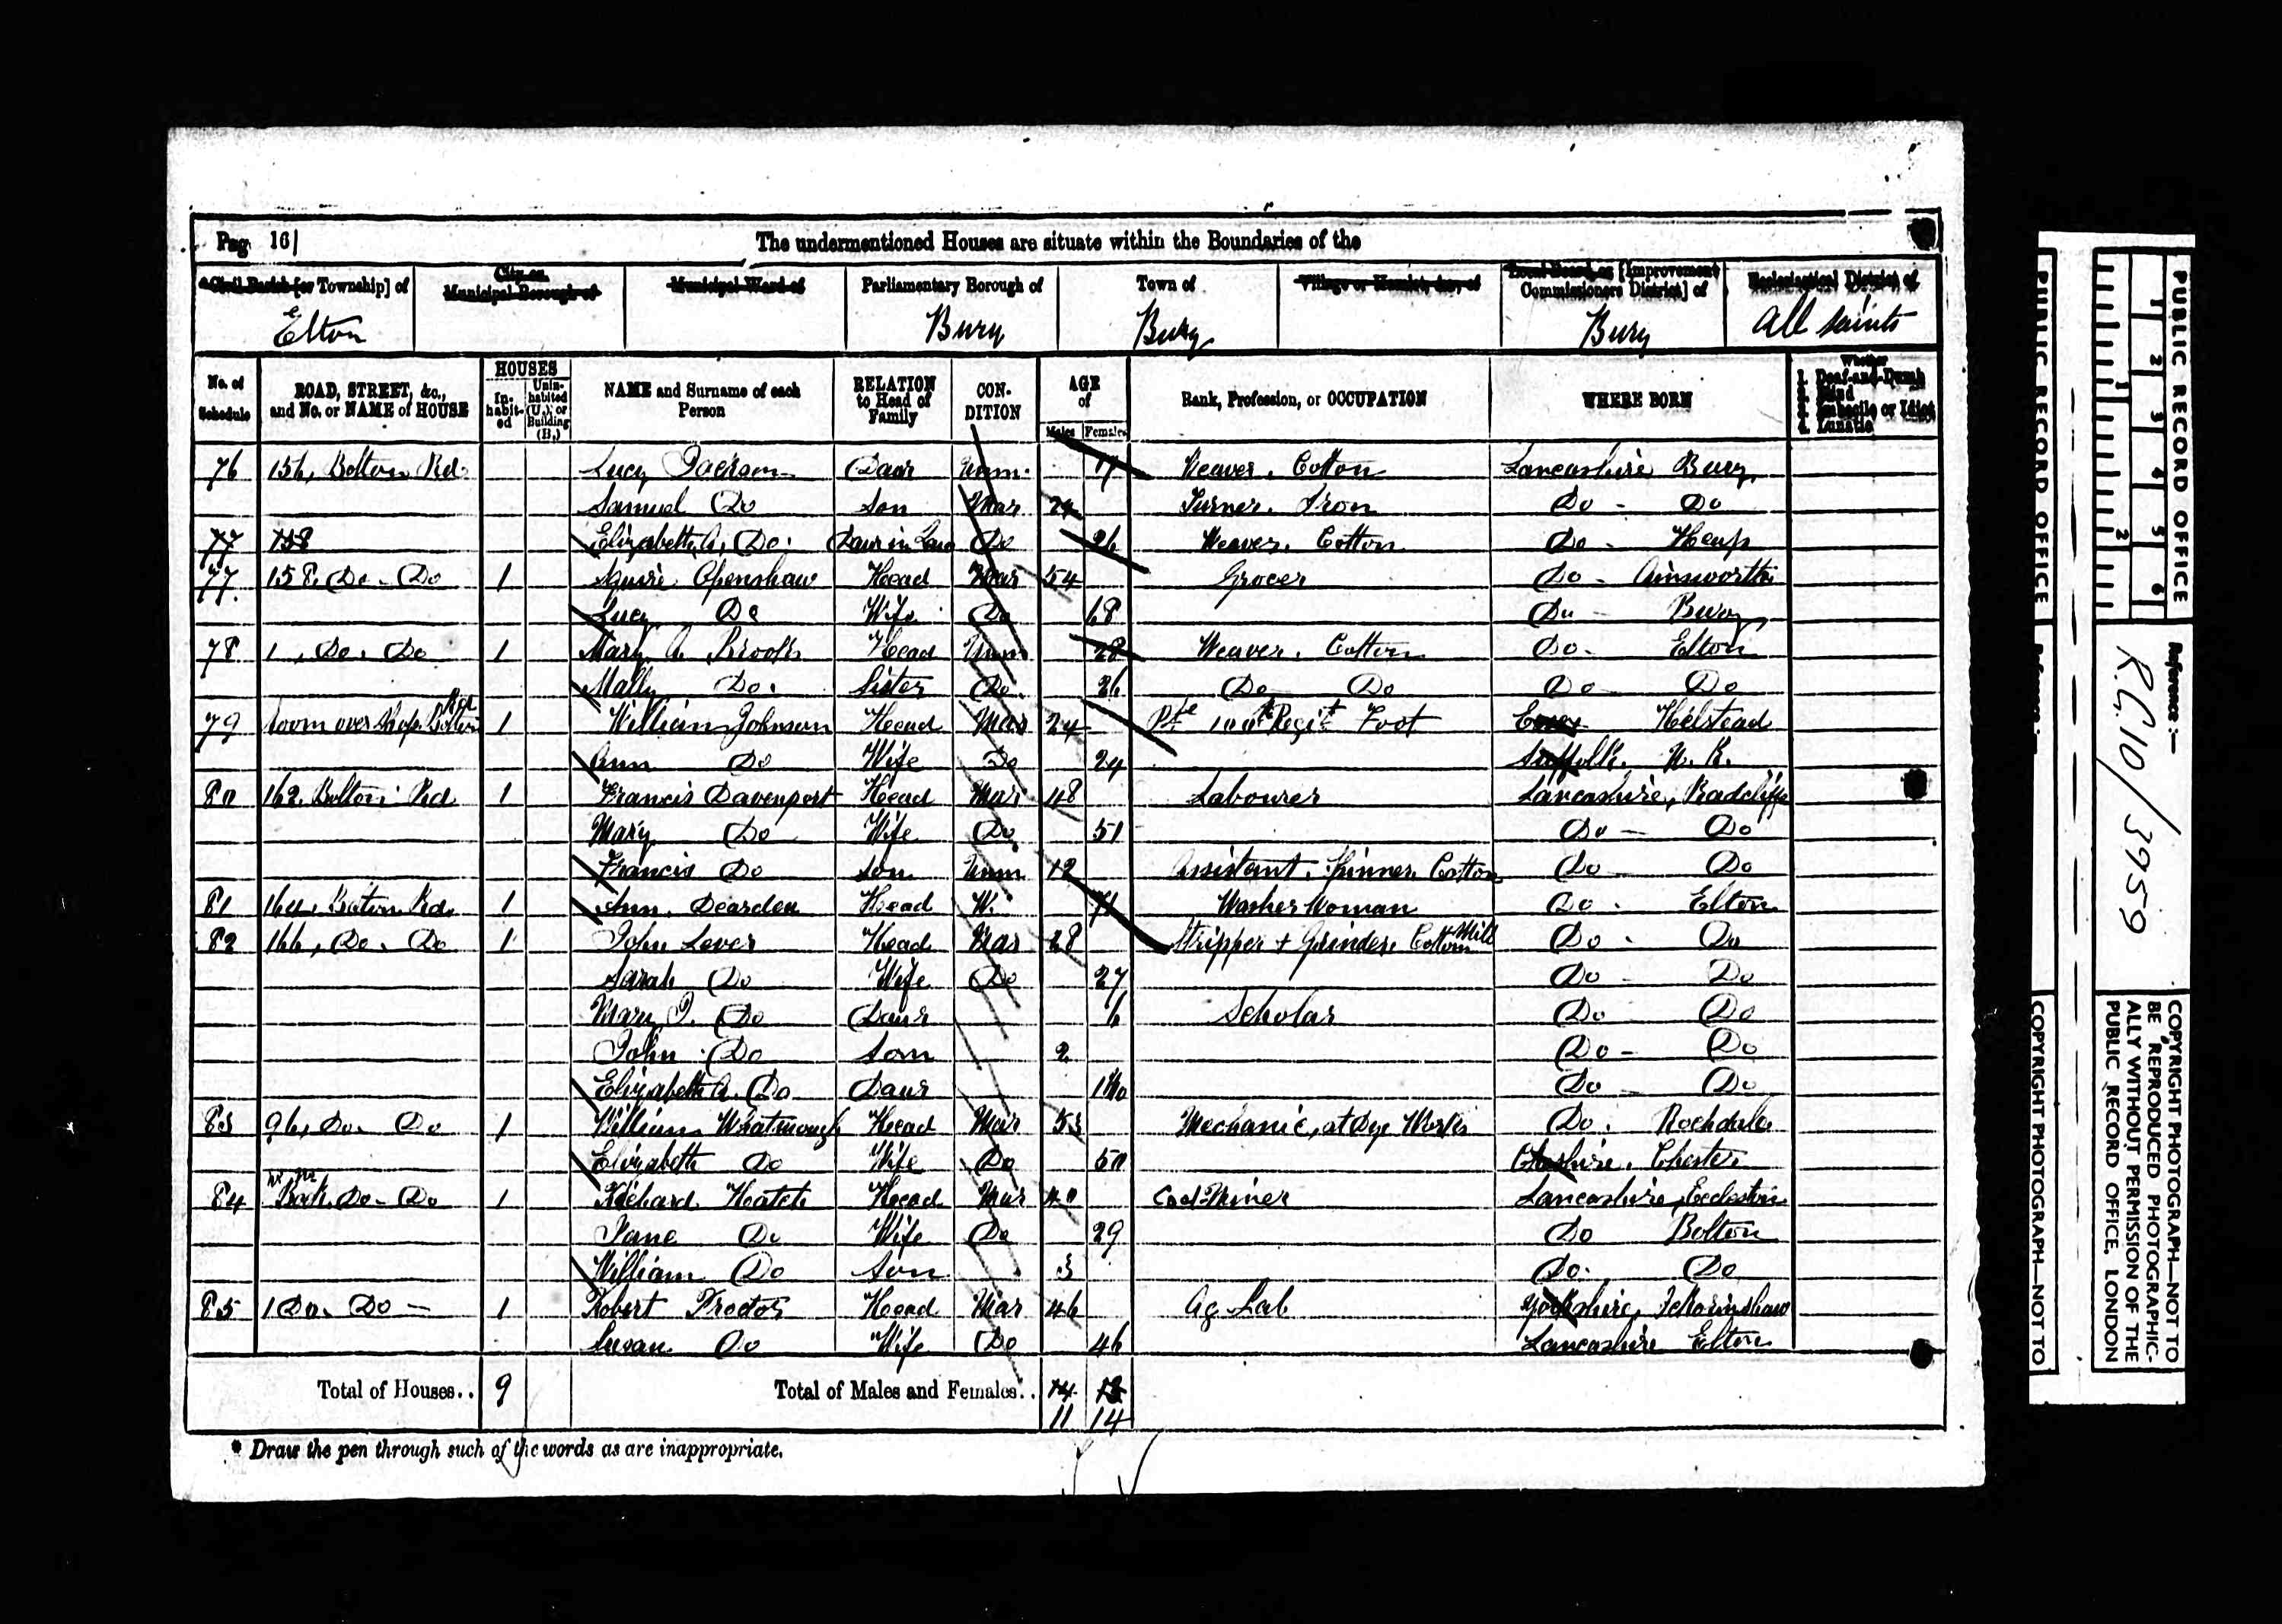 Page 16]
The undermentioned Houses are situate within the Boundaries of the
*Civil Parish [or Township] of
City or Municipal Borough of
Municipal Ward of
Parliamentary Borough of
Town of
Village or Hamlet, &c., of
Local Board, or [Improvement Commissioners District] of
Ecclesiastical District of
Elton
Bury
Bury
Bury
All Saints
No. of Schedule
ROAD, STREET, &c., and No. or NAME of HOUSE
HOUSES
In-habit-ed
Unin-habited (U.), or Building (B.)
NAME and Surname of each Person
RELATION to Head of Family
CON-DITION
AGE of
Males
Females
Rank, Profession, or OCCUPATION
WHERE BORN
Whether
1. Deaf-and-Dumb
2. Blind
3. Imbecile or Idiot
4. Lunatic
76 156, Bolton Rd Lucy Jackson Daur Unm. 17 Weaver. Cotton Lancashire Bury
Samuel Do Son Mar Turner. Iron Do - Do
77 158 Elizabeth A. Do. Daur in Law Do 26 Weaver. Cotton Do - Heap
77. 158. Do - Do 1 Squire Openshaw Head Mar 54 Grocer Do - Ainsworth
Lucy Do Wife Do 68 Do - Bury
78 1, Do. Do 1 Mary A. Brooks Head Unm 28 Weaver. Cotton Do - Elton
Mally Do. Sister Do. 26 Do Do Do - Do
79 Room over Shop Bolton Rd 1 William Johnson Head Mar 24 Pte 100th Regit Foot Essex Helstead
Ann Do Wife Do 24 Suffolk. N. K.
80 162. Bolton Rd 1 Francis Davenport Head Mar 48 Labourer Lancashire, Radcliffe
Mary Do Wife Do 51 Do - Do
Francis Do Son Unm 12 Assistant. Spinner. Cotton Do Do
81 164. Bolton Rd. 1 Ann. Dearden Head W. 71 Washer Woman Do - Elton
82 166, Do. Do 1 John Lever Head Mar 28 Stripper + Grinder. Cotton Mill Do - Do
Sarah Do Wife Do 27 Do - Do
Mary J. Do Daur 6 Scholar Do - Do
John Do Son 2 Do - Do
Elizabeth A. Do Daur Do - Do
83 96, Do. Do 1 William Whatmough Head Mar 53 Mechanic, at Dye Works Do. Rochdale
Elizabeth Do Wife Do 50 Cheshire. Chester
84 Back Do - Do 1 Richard Heatch Head Mar 40 Coal Miner Lancashire, Eccleston
Jane Do Wife Do 29 Do Bolton
William Do Son 3 Do. Do
85 1 Do. Do - 1 Robert Proctor Head Mar 46 Ag Lab Yorkshire,
Susan Do Wife Do 46 Lancashire Elton
Total of Houses.. 9
Total of Males and Females.. 14 13
11 14
* Draw the pen through such of the words as are inappropriate.
PUBLIC RECORD OFFICE
1 2 3 4 5 6
1 2
Reference:-
R.G.10/3959
COPYRIGHT PHOTOGRAPH—NOT TO BE REPRODUCED PHOTOGRAPHIC-ALLY WITHOUT PERMISSION OF THE PUBLIC RECORD OFFICE, LONDON
PUBLIC RECORD OFFICE
COPYRIGHT PHOTOGRAPH—NOT TO